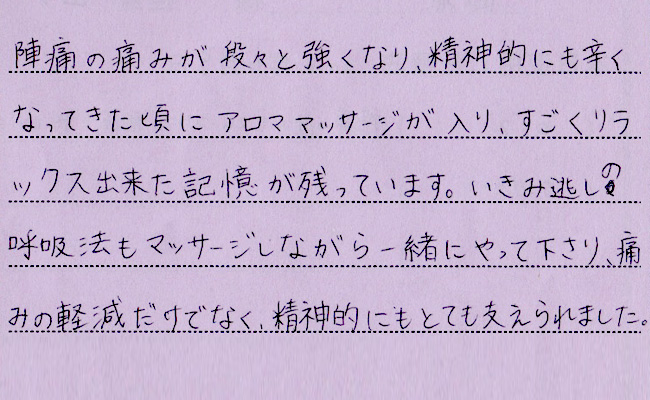 陣痛の痛みが段々と強くなり、精神的にも辛く
なってきた頃にアロママッサージが入り、すごくリラ
ックス出来た記憶が残っています。いきみ逃しの
呼吸法もマッサージしながら一緒にやって下さり、痛
みの軽減だけでなく、精神的にもとても支えられました。